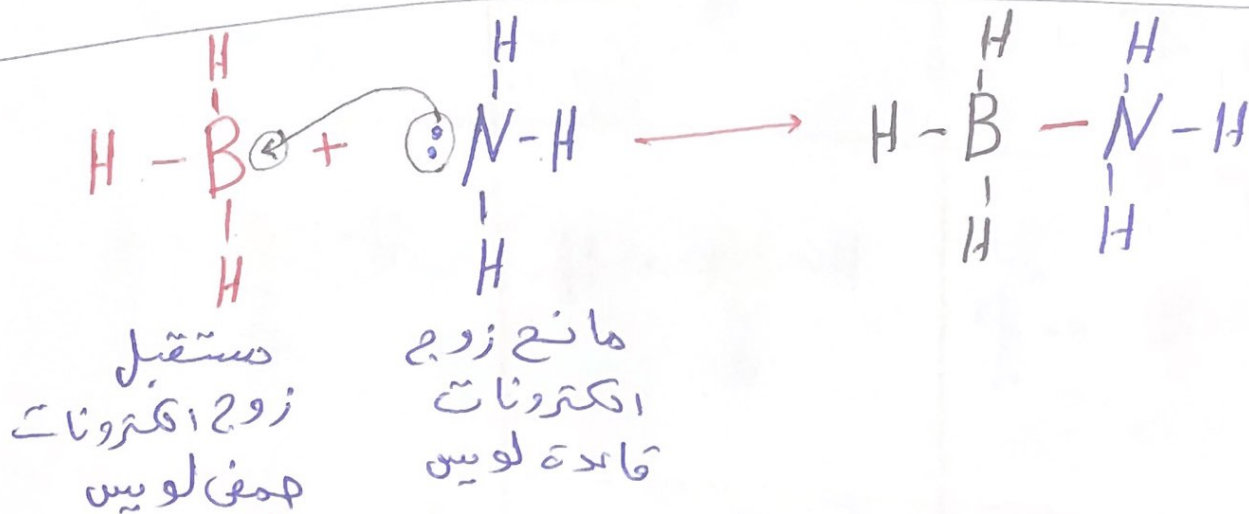 H H H H
H - B + :N - H → H - B - N - H
H H H H
مستقبل
زوج الكترونات
حمض لويس
مانح زوج
الكترونات
قاعدة لويس